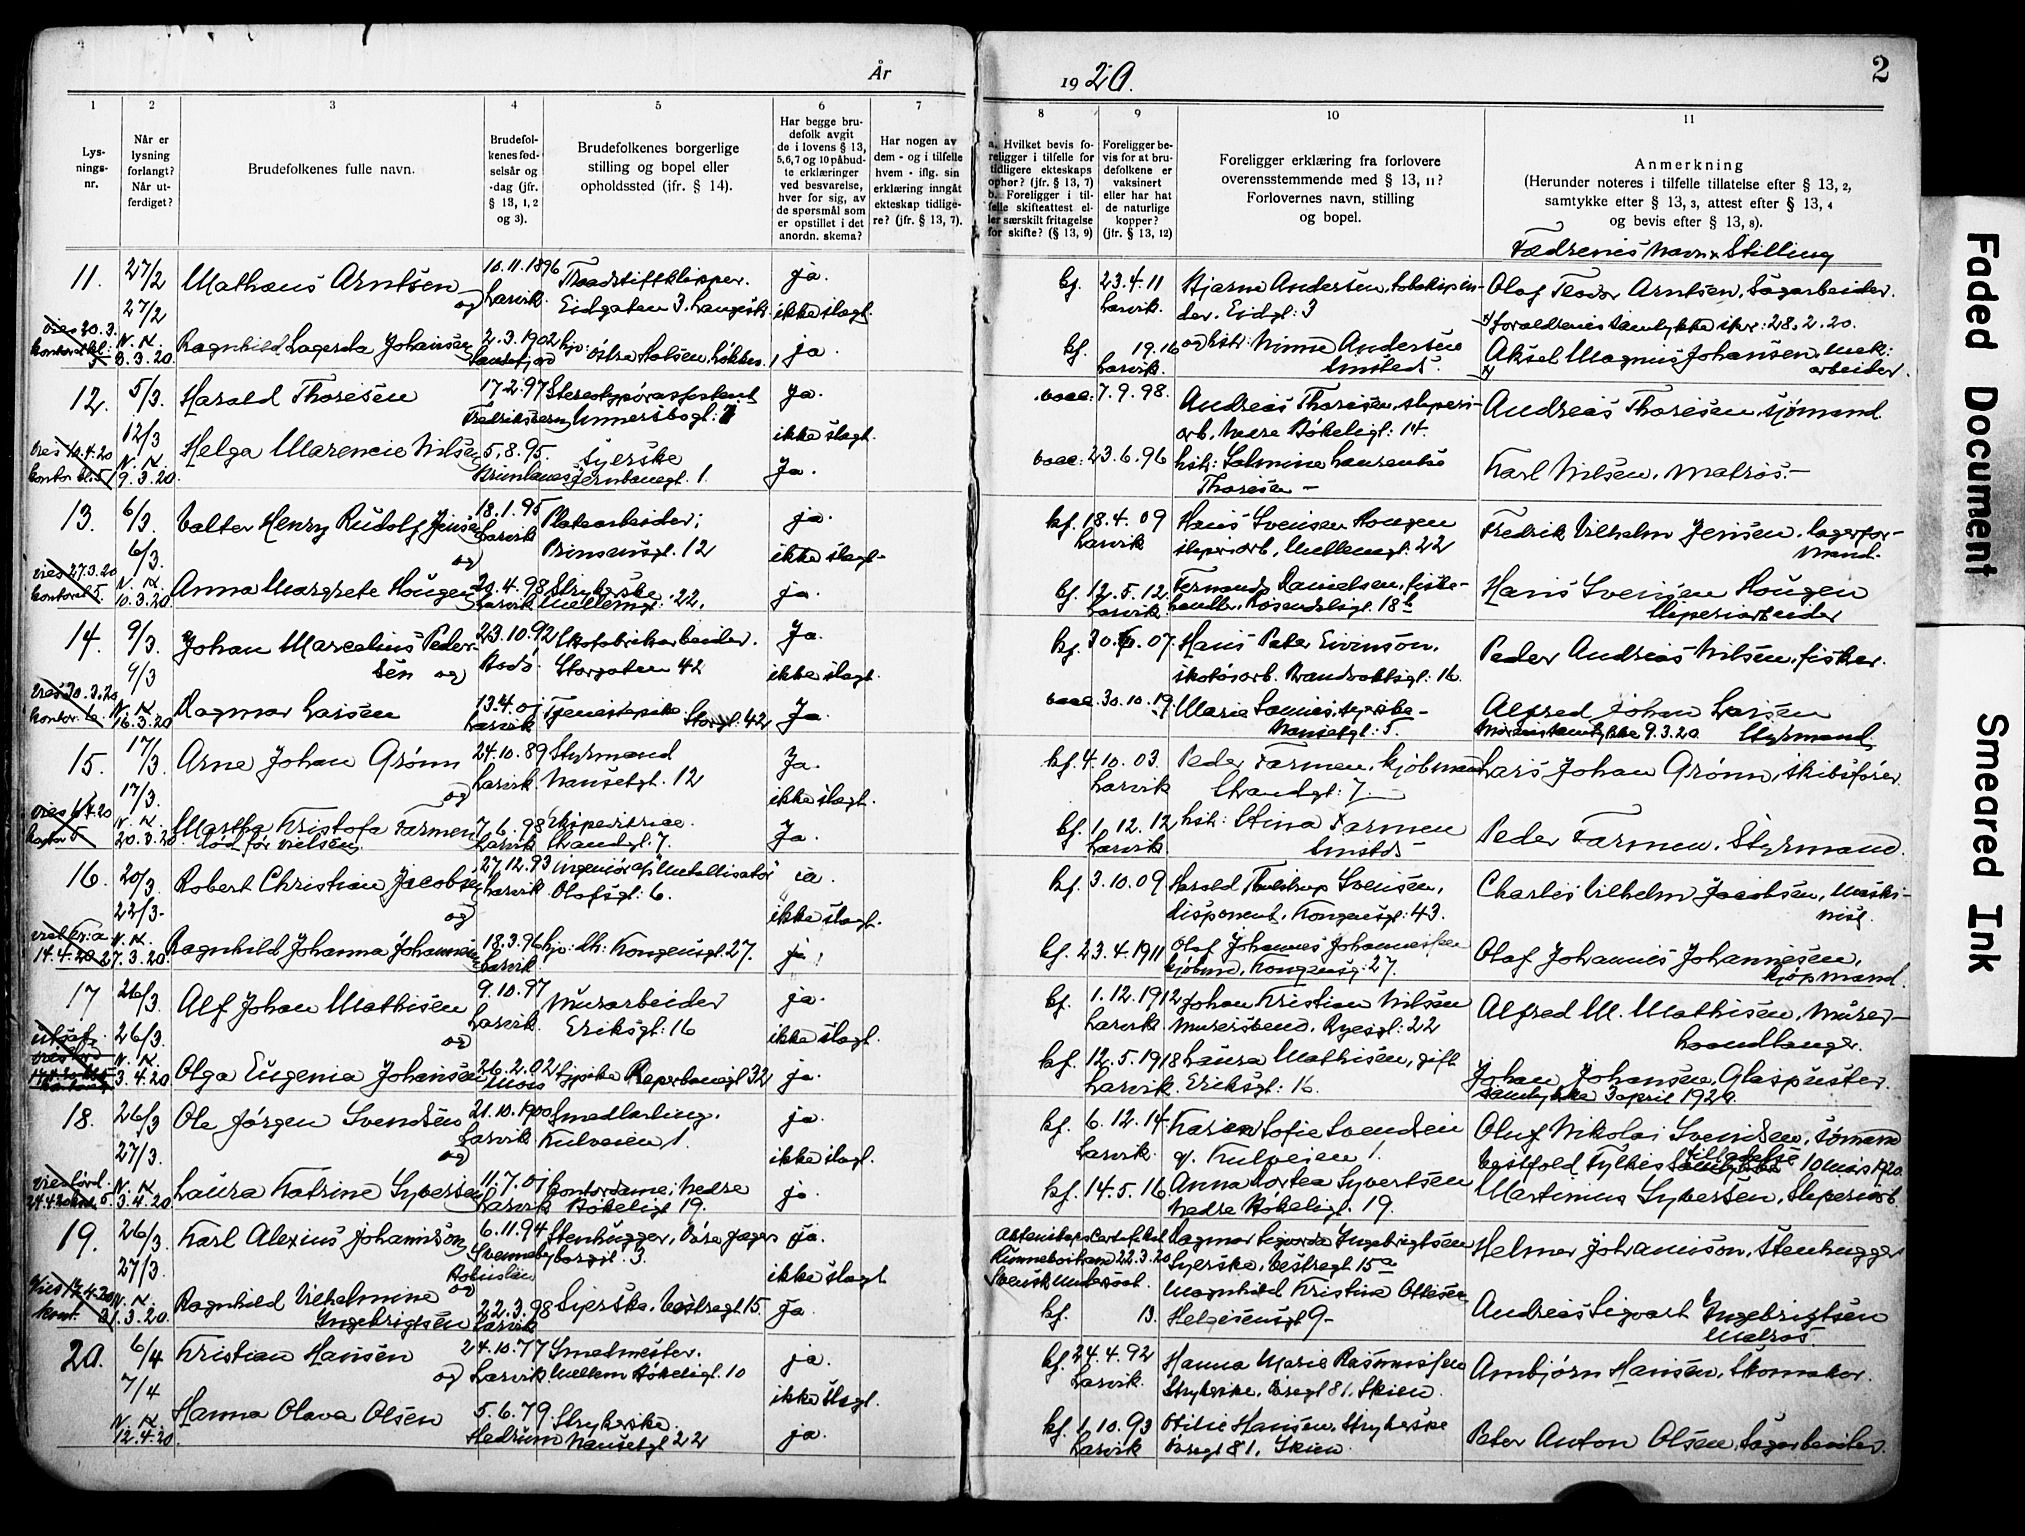 År
19 20.
2
1
2
3
4
5
6
7
8
9
10
11
Lys-
nings-
nr.
Når er
lysning
forlangt?
Når ut-
ferdiget?
Brudefolkenes fulle navn.
Brudefol-
kenes fød-
selsår og
-dag (jfr.
§ 13, 1, 2
og 3).
Brudefolkenes borgerlige
stilling og bopel eller
opholdssted (ifr. § 14).
Har begge bru-
defolk avgit
de i lovens § 13,
5, 6, 7 og 10 påbud-
te erklæringer
ved besvarelse,
hver for sig, av
de spørsmål som
er opstillet i det
anordn. skema?
Har nogen av
dem - og i tilfelle
hvem - iflg. sin
erklæring inngåt
ekteskap tidlige-
re? (jfr. § 13, 7).
a. Hvilket bevis fo-
religger i tilfelle for
tidligere ekteskaps
ophør? (jfr. § 13, 7)
b. Foreligger i til-
felle skifteattest el-
ler særskilt fritagelse
for skifte? (§ 13, 9)
Foreligger be-
vis for at bru-
defolkene er
vaksinert
eller har hat
de naturlige
kopper?
(jfr. § 13, 12)
Foreligger erklæring fra forlovere
overensstemmende med § 13, 11?
Forlovernes navn, stilling
og bopel.
Anmerkning
(Herunder noteres i tilfelle tillatelse efter § 13, 2,
samtykke efter § 13, 3, attest efter § 13, 4
og bevis efter § 13, 8).
Fædrenes navn & Stilling
11. 27/2 Mathæus Arntsen og 10.11.1896 Larvik Traadstiftklipper. Eidgaten 3. Langestr. ja. ikke slagt.
27/2
kf. 23.4.11 Larvik. Bjarne Andersen, Eidgt: 3 Olaf Teodor Arntsen, Sagarbeider.
vies 20.3. kontoret kl. 5 N.N. 8.3.20 Ragnhild Lagerta Johansen 2.3.1902 Sandefjord hjv: østre Halsen, ja.
forældrenes samtykke 28.2.20.
kf. 19.16 Larvik. og hst: Minne Andersen Smsteds. Aksel Magnus Johansen, mek: arbeider.
12. 5/3. Harald Thoresen 17.2.97 Fredriksvern Stereotypørassistent ja. ikke slagt.
12/3
vacc. 7.9.98. Andreas Thoresen, sliperi-arb. Nedre Bøkeligt: 14. Andreas Thoresen, sjømand.
vies 10.4.20 kontor kl. 5 N.N. 9.3.20. Helga Marencie Nilsen 5.8.95. Brunlanes Syerske Jernbanegt. 1. Ja.
vacc: 23.6.96 hst: Salmine Laurentse Thoresen - Karl Nilsen, Matros. -
13. 6/3. Valter Henry Rudolf Jensen og 18.1.95 Larvik Platearbeider; Prinsensgt. 12 ja. ikke slagt.
6/3.
kf. 18.4.09 Larvik Hans Svensen Hougen sliperiarb, Mellemgt: 22 Fredrik Vilhelm Jensen, lagerfor-mand.
vies 27.3.20 kontoret 5. N.N. 10.3.20. Anna Margrete Hougen 20.4.98 Larvik Strykerske Mellemgt: 22. ja.
kf. 12.5.12. Larvik Danielsen, fiske-handler, Rosendalsgt. 18 b Hans Svensen Hougen Sliperiarbeider
14. 9/3. Johan Marcelius Peder-sen og 23.10.92 Bodø. Skofabrikarbeider. Storgaten 42 Ja. ikke slagt.
9/3
kf. 30.6.07. Hans Peter Eivinson, skotøiarb. Brandvaktsgt: 16. Peder Andreas Nilsen, fisker.
vies 30.3.20 kontor. N.N. 16.3.20 Dagmar Larsen 13.4.01 Larvik Tjenestepike Storgt. 42 Ja.
vacc. 30.10.19. Marie Nansetgt: 5. Alfred Johan Larsen Styrmand
samtykke 9.3.20.
15. 17/3. Arne Johan Grønn og 24.10.89 Larvik Styrmand Nansetgt. 12 Ja. ikke slagt.
17/3.
kf. 4.10.03. Larvik Peder Farmen, kjøbmand Strandgt: 7. Lars Johan Grønn, skibsfører
vies kontor 5 N.N. 20.3.20 Martha Kristofa Farmen død før vielsen 7.6.98 Larvik Ekspeditrice. Strandgt. 7. Ja.
kf. 1.12.12 Larvik hst: Stina Farmen Smstds Peder Farmen, Styrmand.
16. 20/3. Robert Christian Jacobsen og 27.12.93 Larvik ingeniør Olafsgt: 6. ja. ikke slagt.
22/3.
kf. 3.10.09 Harald Thulstrup Svensen, disponent, Kongensgt: 43. Charles Vilhelm Jacobsen, Maski-nist.
14.4.20 N.N. 27.3.20. Ragnhild Johanna Johannesen 18.3.96 Larvik hjv: dh: Kongensgt. 27. ja.
kf. 23.4.1911 Olaf Johannes Johannessen kjøbm, Kongensg: 27. Olaf Johannes Johannesen, kjøpmand.
17 26/3. Alf Johan Mathisen og 9.10.97 Larvik. Murarbeider Eriksgt: 16 ja. ikke slagt.
26/3.
kf. 1.12.1912 Larvik Johan Kristian Nilsen Murersvend, Ryesgt: 22 Alfred M. Mathisen, Murer-haandlanger.
N.N. 3.4.20 Olga Eugenia Johansen 26.2.02 Moss Typike Reperbanegt 32 ja.
kf. 12.5.1918 Larvik. Laura Mathisen, gift Eriksgt: 16. Johan Johansen, Glaspuster.
Samtykke 3 april 1920.
18. 26/3 Ole Jørgen Svendsen og 21.10.1900 Larvik Smedlærling. Kulveien 1. ja. ikke slagt.
27/3.
kf. 6.12.14 Larvik. Karen Sofie Svendsen g. Kulveien 1. Oluf Nikolai Svendsen, sømand
Vestfold Fylkes tilladelse 10 mars 1920.
24.4.20 N.N. 3.4.20. Laura Katrine Syversen 11.7.01 Larvik Kontordame; Nedre Bøkeligt 19. ja.
kf. 14.5.16. Anna Dortea Syvertsen Nedre Bøkeligt. 19. Martinius Syversen, Sliperiarb
19. 26/3. Karl Alexius Johannison og 6.11.94 Svenneby Bohuslän Stenhugger, Jæger-borggt. 3. ja. ikke slagt
27/3.
22.3.20 Svensk undersaat. Dagmar Sigvarda Ingebrigtsen Syerske, Vestregt 15 a Helmer Johannison, Stenhugger
Vies 17.4.20 kont. N.N. 31.3.20. Ragnhild Vilhelmine Ingebrigtsen 22.3.98 Larvik Syerske. Vestregt. 15. ja.
kf. 13. Magnhild Kristine Ottesen Helgesensgt 9 - Andreas Sigvart Ingebrigtsen Matros.
20. 6/4 Kristian Hansen og 24.10.77 Larvik. Smedmester. Mellem Bøkeligt. 10 ja. ikke slagt.
7/4
kf. 24.4.92 Larvik. Hanna Marie Rasmussen Strykerske, 81, Skien. Ambjørn Hansen, Skomaker.
N.N. 12.4.20. Hanna Olava Olsen 5.6.79. Hedrum Strykerske. Nansetgt 22 ja.
kf. 1.10.93 Larvik Otilie Hansen, Strykerske 81, Skien. Peter Anton Olsen, Sagarbeider.
Faded Document
Smeared Ink